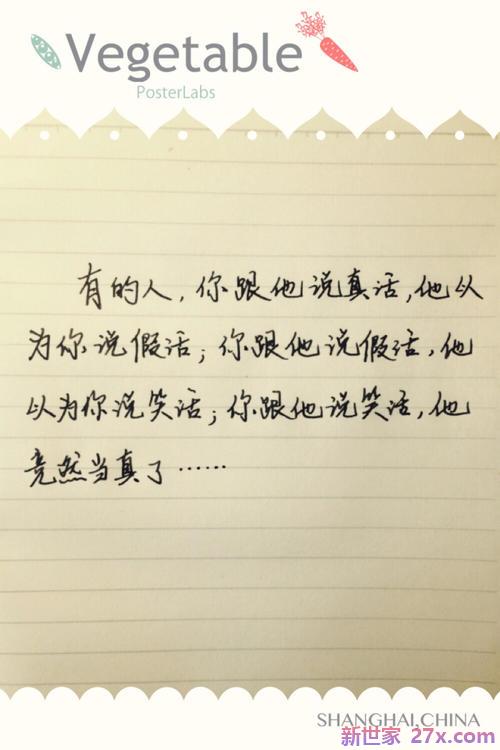 Vegetable
PosterLabs
有的人，你跟他说真话，他以
为你说假话；你跟他说假话，他
以为你说笑话；你跟他说笑话，他
竟然当真了……
SHANGHAI,CHINA
新世家 27x.com